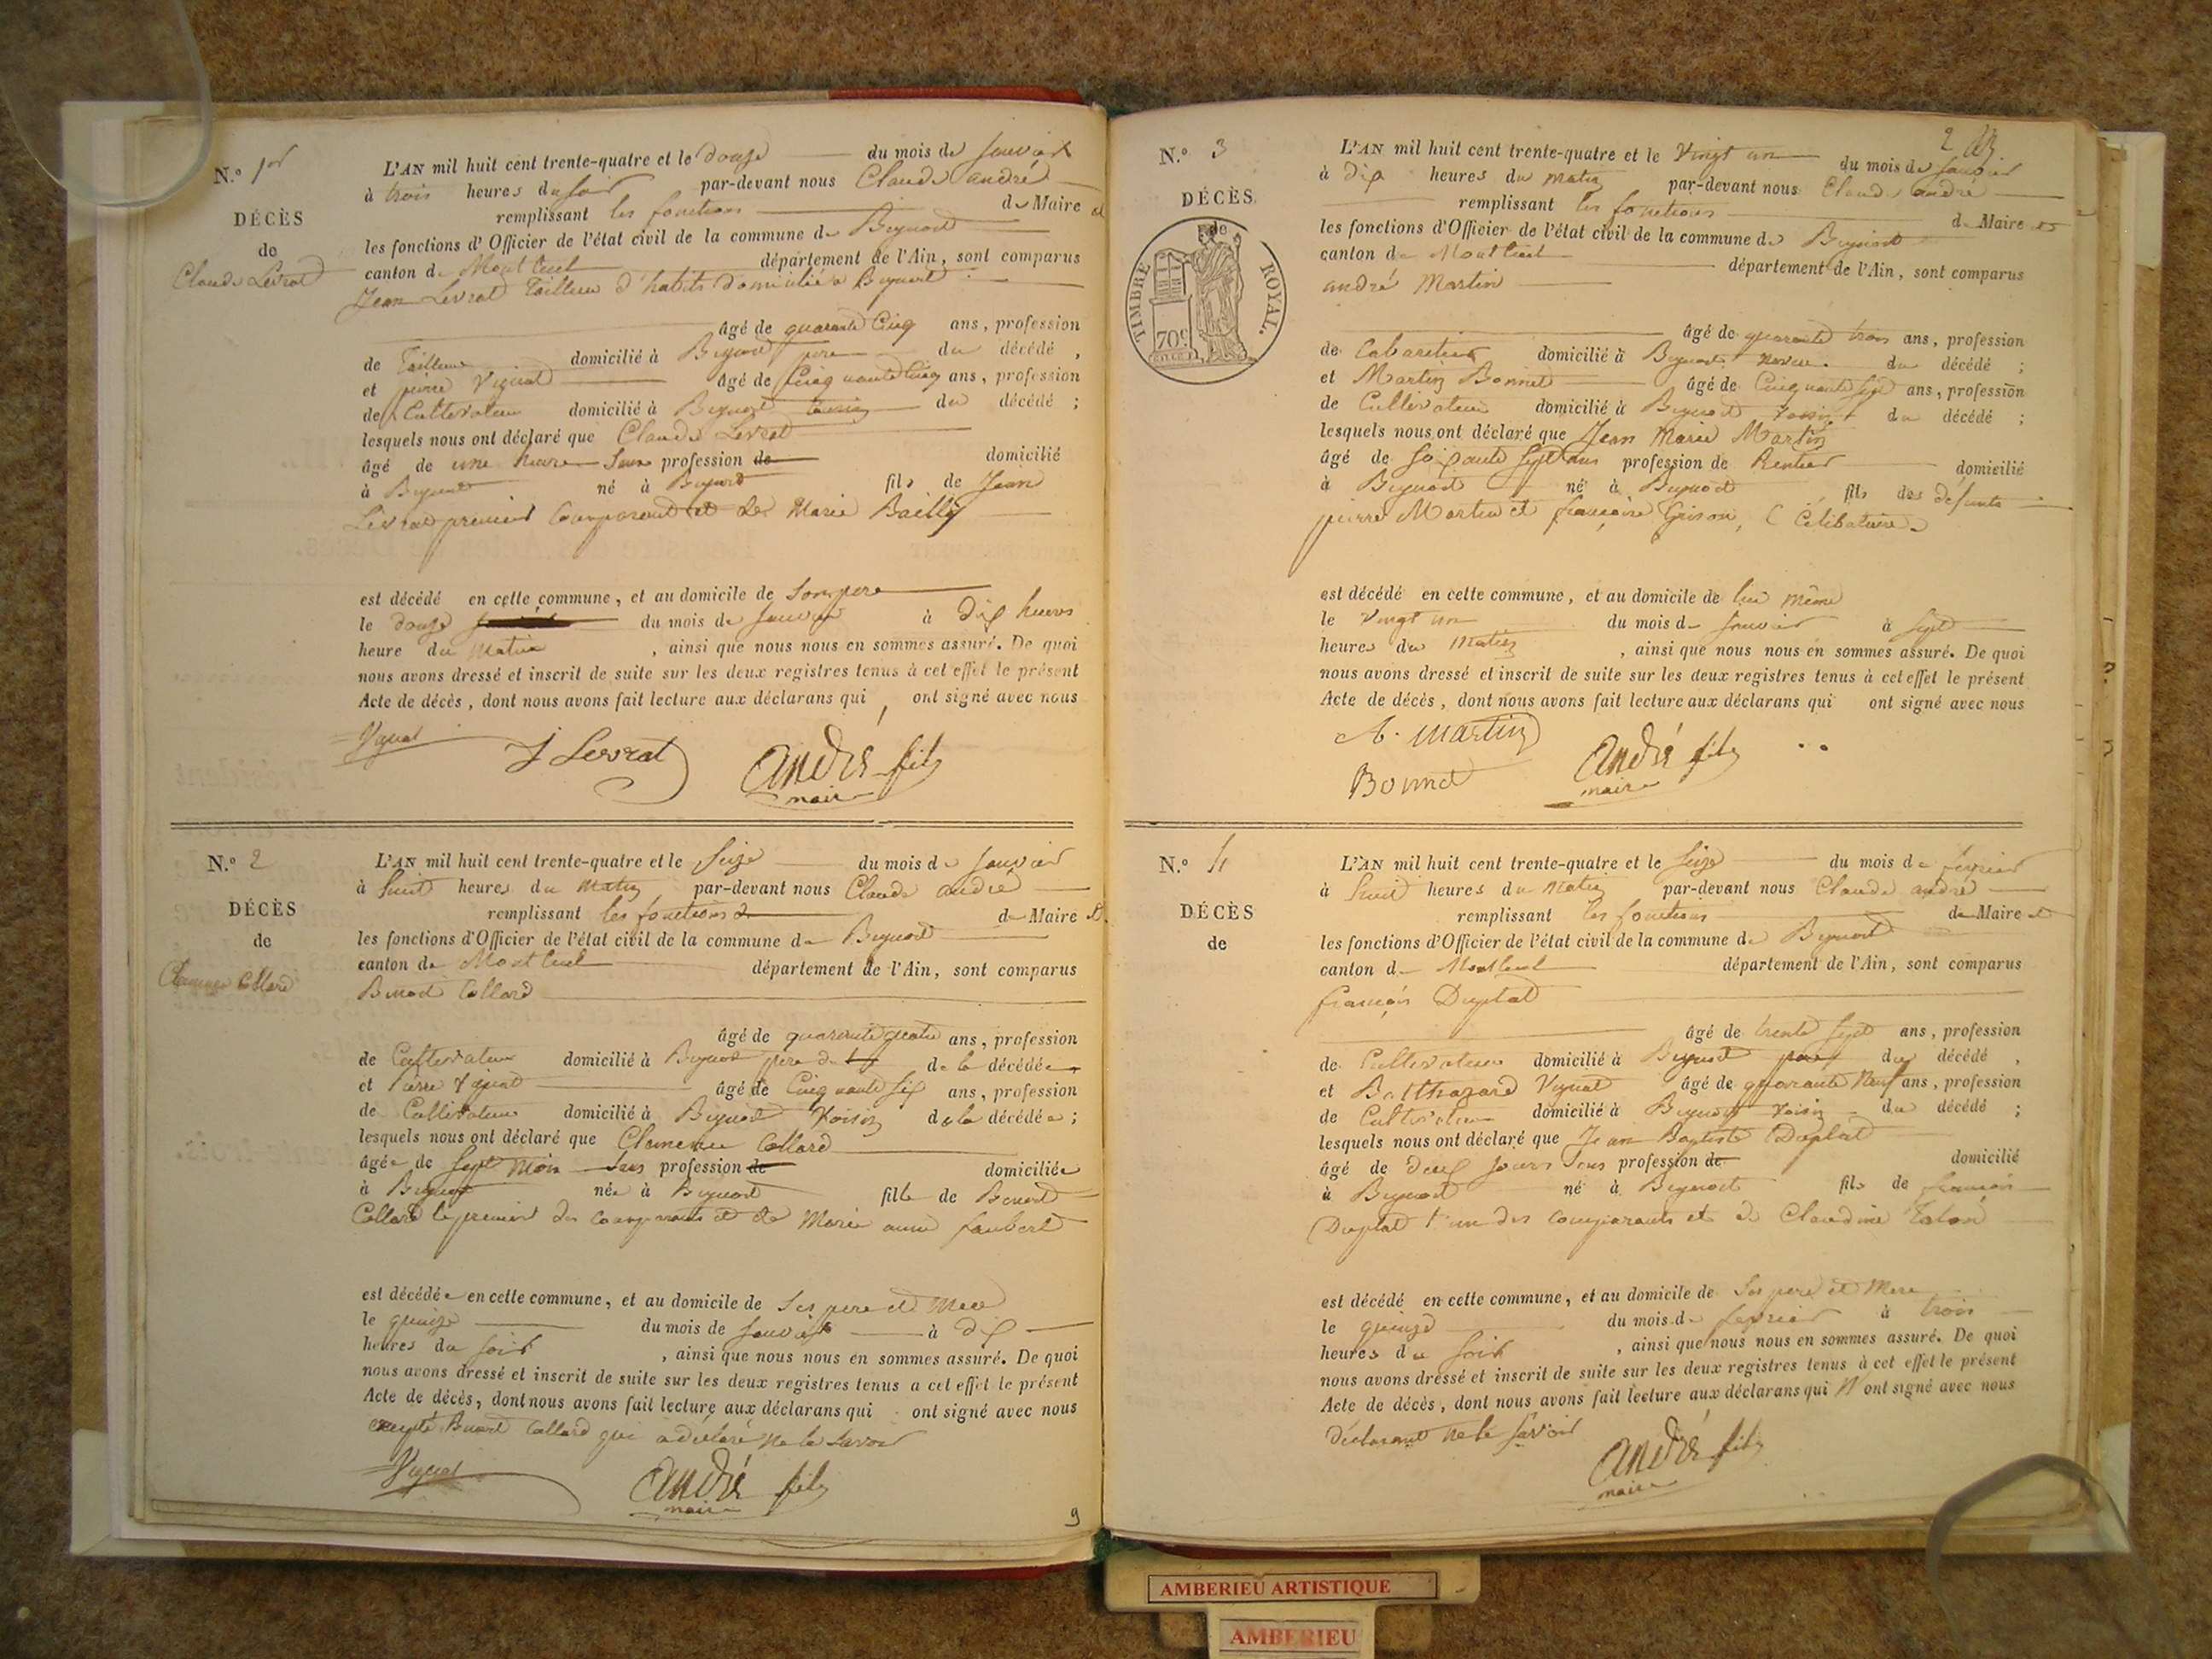 N.º 1er
DÉCÈS
de
Claude Levrat
L'AN mil huit cent trente-quatre et le douze du mois de Janvier
à trois heures du soir par-devant nous Claude andré
remplissant les fonctions de Maire et
les fonctions d'Officier de l'état civil de la commune de Beynost
canton de Montluel département de l'Ain, sont comparus
Jean Levrat Tailleur d'habits domicilié à Beynost
âgé de quarante Cinq ans, profession
de Tailleur domicilié à Beynost pere du décédé,
et pierre Vignat âgé de Cinquante Cinq ans, profession
de Cultivateur domicilié à Beynost du décédé;
lesquels nous ont déclaré que Claude Levrat
âgé de une heure Sans profession de domicilié
à Beynost né à Beynost fils de Jean
Levrat premier Comparant et de Marie Bailly
est décédé en cette commune, et au domicile de Son pere
le douze du mois de Janvier à dix heures
heure du Matin, ainsi que nous nous en sommes assuré. De quoi
nous avons dressé et inscrit de suite sur les deux registres tenus à cet effet le présent
Acte de décès, dont nous avons fait lecture aux déclarans qui ont signé avec nous
Vignat J Levrat André fils
maire
N.º 2
DÉCÈS
de
Collard
L'AN mil huit cent trente-quatre et le Seize du mois de Janvier
à huit heures du Matin par-devant nous Claude andré
remplissant les fonctions de Maire et
les fonctions d'Officier de l'état civil de la commune de Beynost
canton de Montluel département de l'Ain, sont comparus
Benoit Collard
âgé de quarante quatre ans, profession
de Cultivateur domicilié à Beynost pere de la décédée,
et Pierre Vignat âgé de Cinquante Six ans, profession
de Cultivateur domicilié à Beynost Voisin de la décédée;
lesquels nous ont déclaré que Collard
âgée de Sept Mois Sans profession de domiciliée
à Beynost née à Beynost fille de Benoit
Collard le premier des Comparants et de Marie anne Jaubert
est décédée en cette commune, et au domicile de Ses pere et Mere
le quinze du mois de Janvier à dix
heures du soir, ainsi que nous nous en sommes assuré. De quoi
nous avons dressé et inscrit de suite sur les deux registres tenus a cet effet le présent
Acte de décès, dont nous avons fait lecture aux déclarans qui ont signé avec nous
excepté Benoit Collard qui a déclaré ne le Savoir
Vignat André fils
maire
9
2
N.º 3
DÉCÈS
de
TIMBRE ROYAL.
70c
L'AN mil huit cent trente-quatre et le Vingt un du mois de Janvier
à dix heures du matin par-devant nous Claude andré
remplissant les fonctions de Maire et
les fonctions d'Officier de l'état civil de la commune de Beynost
canton de Montluel département de l'Ain, sont comparus
andré Martin
âgé de quarante trois ans, profession
de Cabaretier domicilié à Beynost neveu du décédé;
et Martin Bonnet âgé de Cinquante Sept ans, profession
de Cultivateur domicilié à Beynost voisin du décédé;
lesquels nous ont déclaré que Jean Marie Martin
âgé de Soixante Sept ans profession de Rentier domicilié
à Beynost né à Beynost fils des défunts
pierre Martin et françoise Grison, Célibataire
est décédé en cette commune, et au domicile de lui même
le Vingt un du mois de Janvier à Sept
heures du Matin, ainsi que nous nous en sommes assuré. De quoi
nous avons dressé et inscrit de suite sur les deux registres tenus à cet effet le présent
Acte de décès, dont nous avons fait lecture aux déclarans qui ont signé avec nous
A. martin
Bonnet André fils
maire
N.º 4
DÉCÈS
de
L'AN mil huit cent trente-quatre et le Seize du mois de fevrier
à huit heures du Matin par-devant nous Claude andré
remplissant les fonctions de Maire et
les fonctions d'Officier de l'état civil de la commune de Beynost
canton de Montluel département de l'Ain, sont comparus
françois Duplat
âgé de trente Sept ans, profession
de Cultivateur domicilié à Beynost pere du décédé,
et Balthazard Vignat âgé de quarante Neuf ans, profession
de Cultivateur domicilié à Beynost Voisin du décédé;
lesquels nous ont déclaré que Jean Baptiste Duplat
âgé de deux Jours Sans profession de domicilié
à Beynost né à Beynost fils de francois
Duplat l'un des comparants et de Claudine Talon
est décédé en cette commune, et au domicile de Ses pere et Mere
le quinze du mois de fevrier à trois
heures du Soir, ainsi que nous nous en sommes assuré. De quoi
nous avons dressé et inscrit de suite sur les deux registres tenus à cet effet le présent
Acte de décès, dont nous avons fait lecture aux déclarans qui N'ont signé avec nous
Déclarant ne le Savoir
André fils
maire
AMBERIEU ARTISTIQUE
AMBERIEU